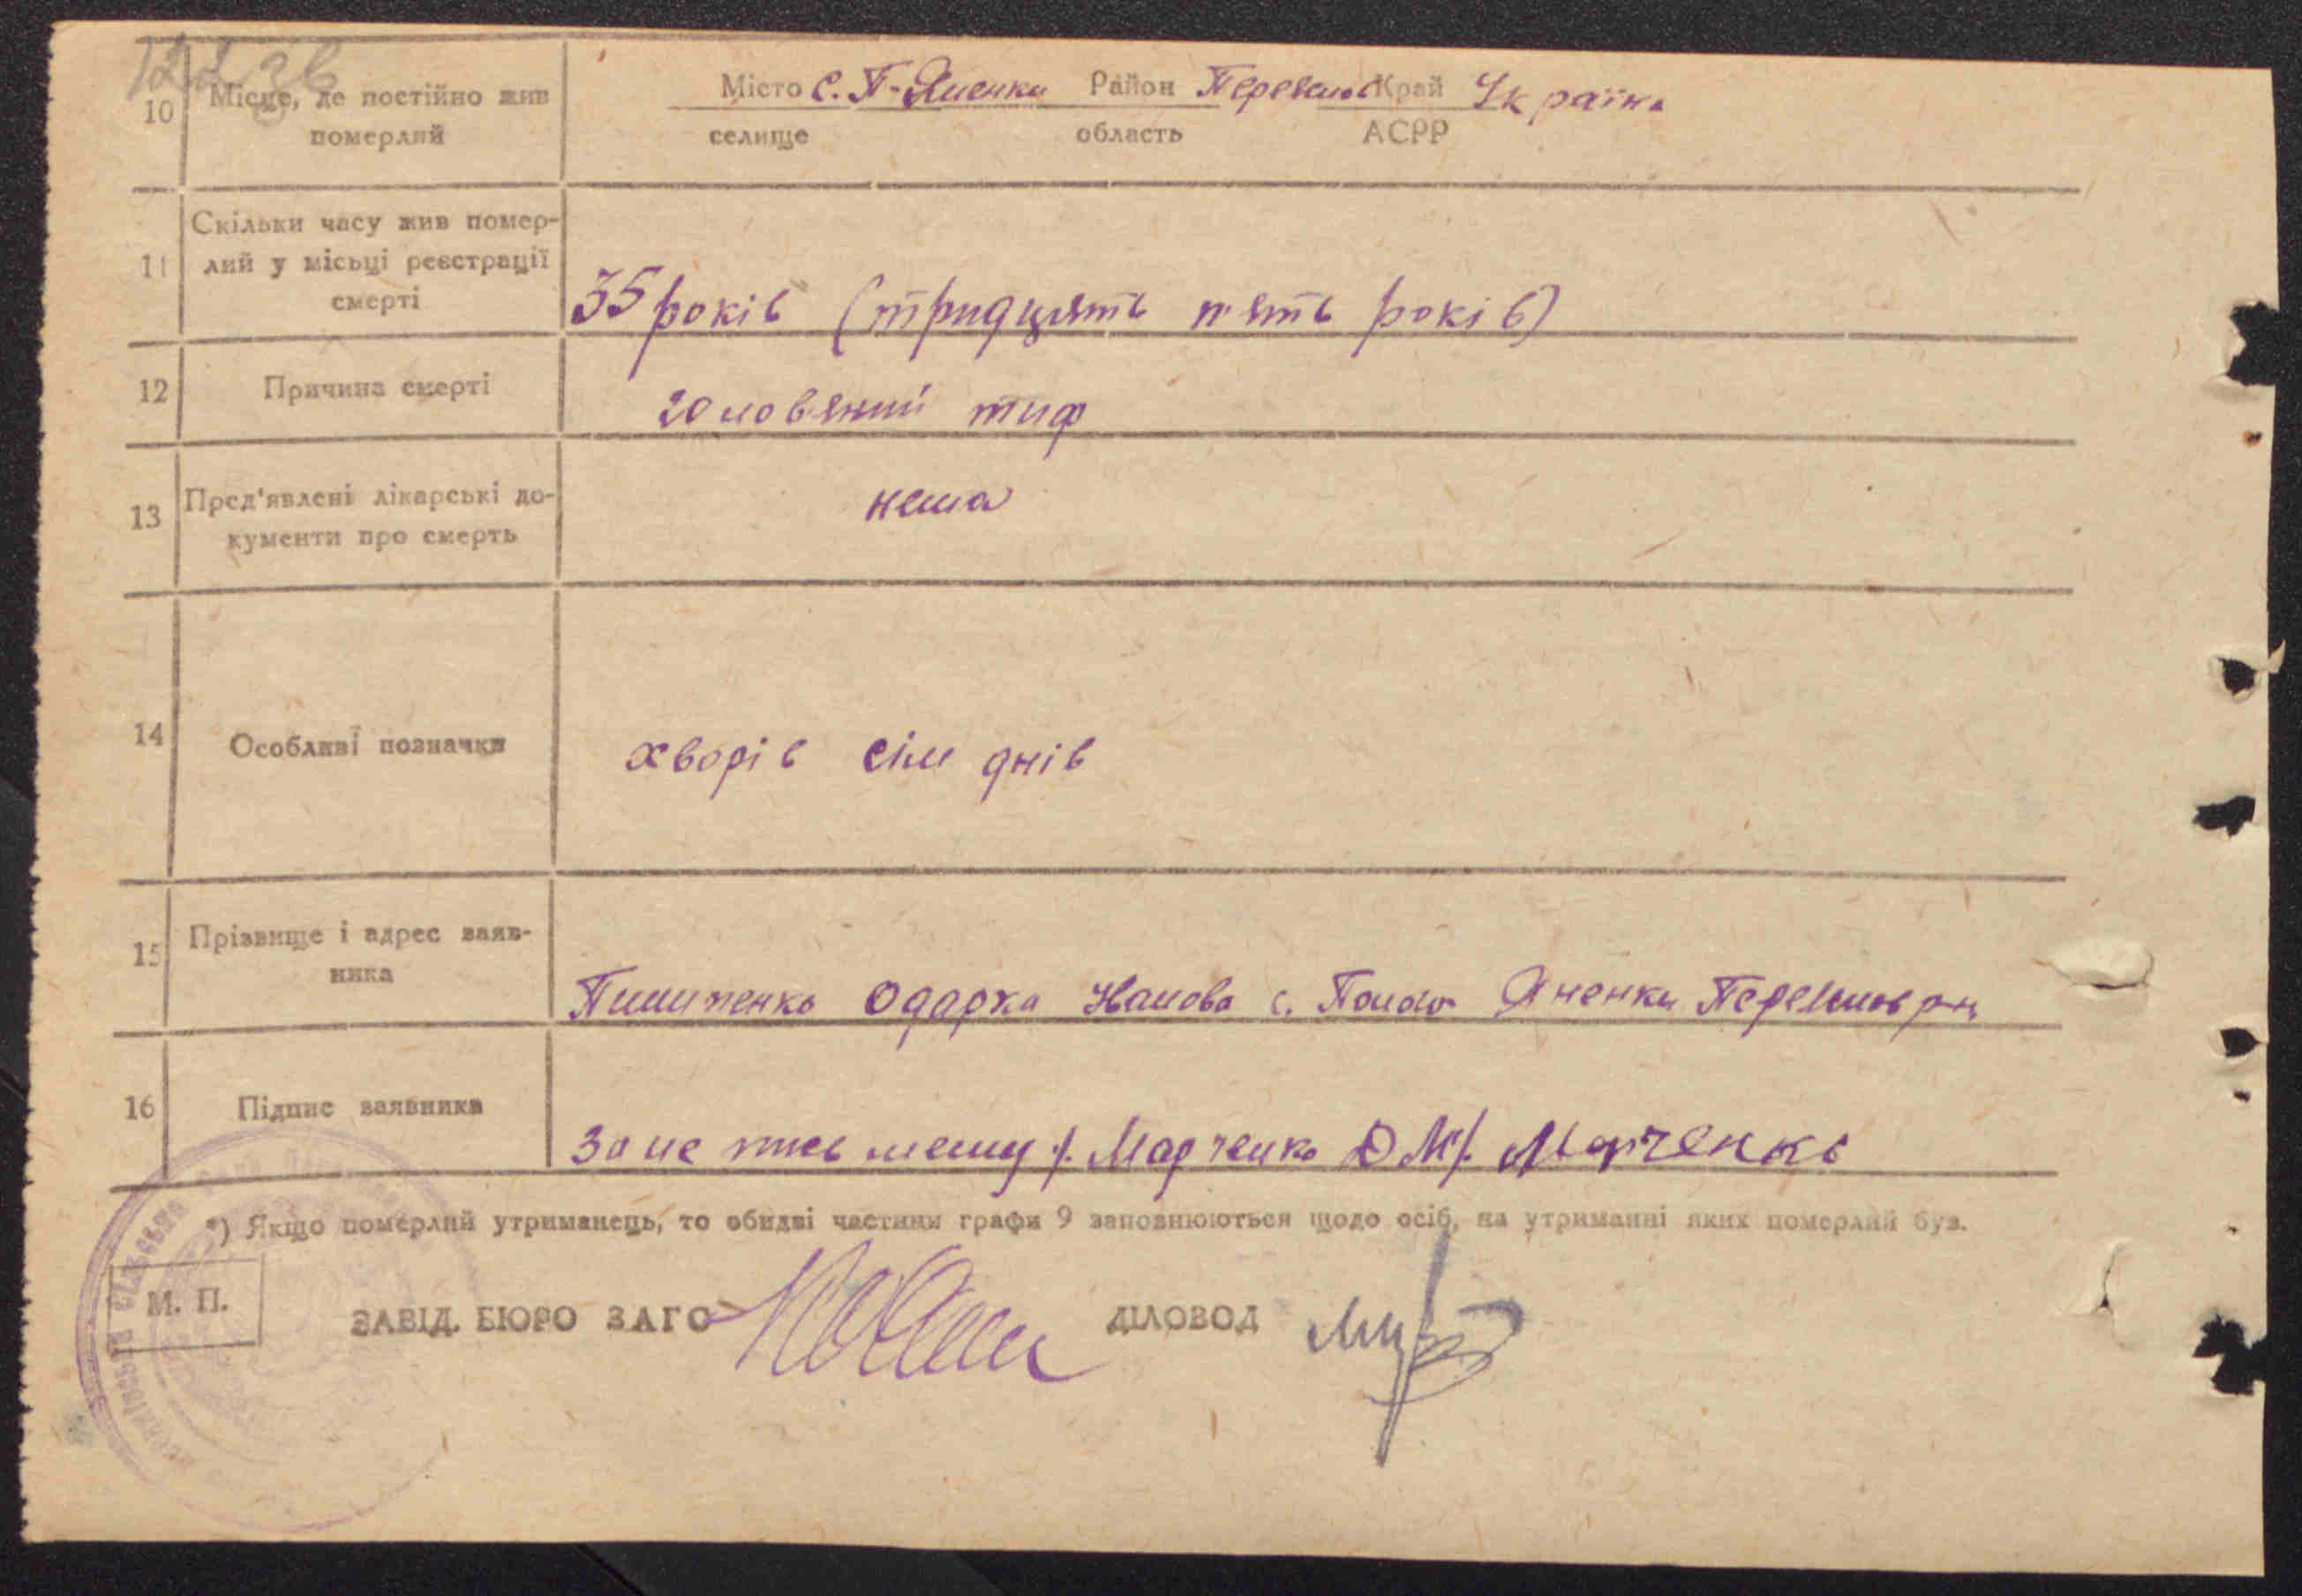 10 Місце, де постійно жив померлий
Місто с. П-Яненки Район Переясл Край Україна
селище область АСРР
11 Скільки часу жив помер-
лий у місьці реєстрації
смерті
35 років (тридцять п'ять років)
12 Причина смерті
головяний тиф
13 Пред'явлені лікарські до-
кументи про смерть
нема
14 Особливі позначки
хворів сім днів
15 Прізвище і адрес заяв-
ника
Пилипенко Одарка с. Яненки Переяслов р-н
16 Підпис заявника
За не письмену /. Марченко Д М/. Марченко
*) Якщо померлий утриманець, то обидві частини графи 9 заповнюються щодо осіб, на утриманні яких померлий був.
М. П.
ЗАВІД. БЮРО ЗАГС ДІЛОВОД